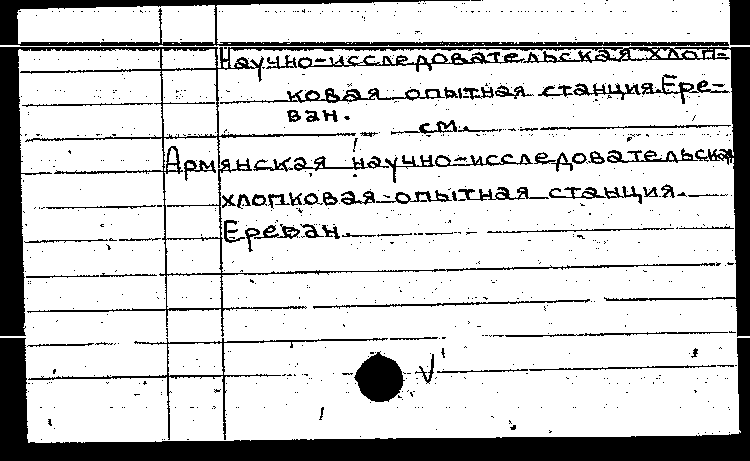 Научно-исследовательская хлоп-
ковая опытная станция. Ере-
ван.
см.
Армянская научно-исследовательская
хлопковая опытная станция.
Ереван.
V